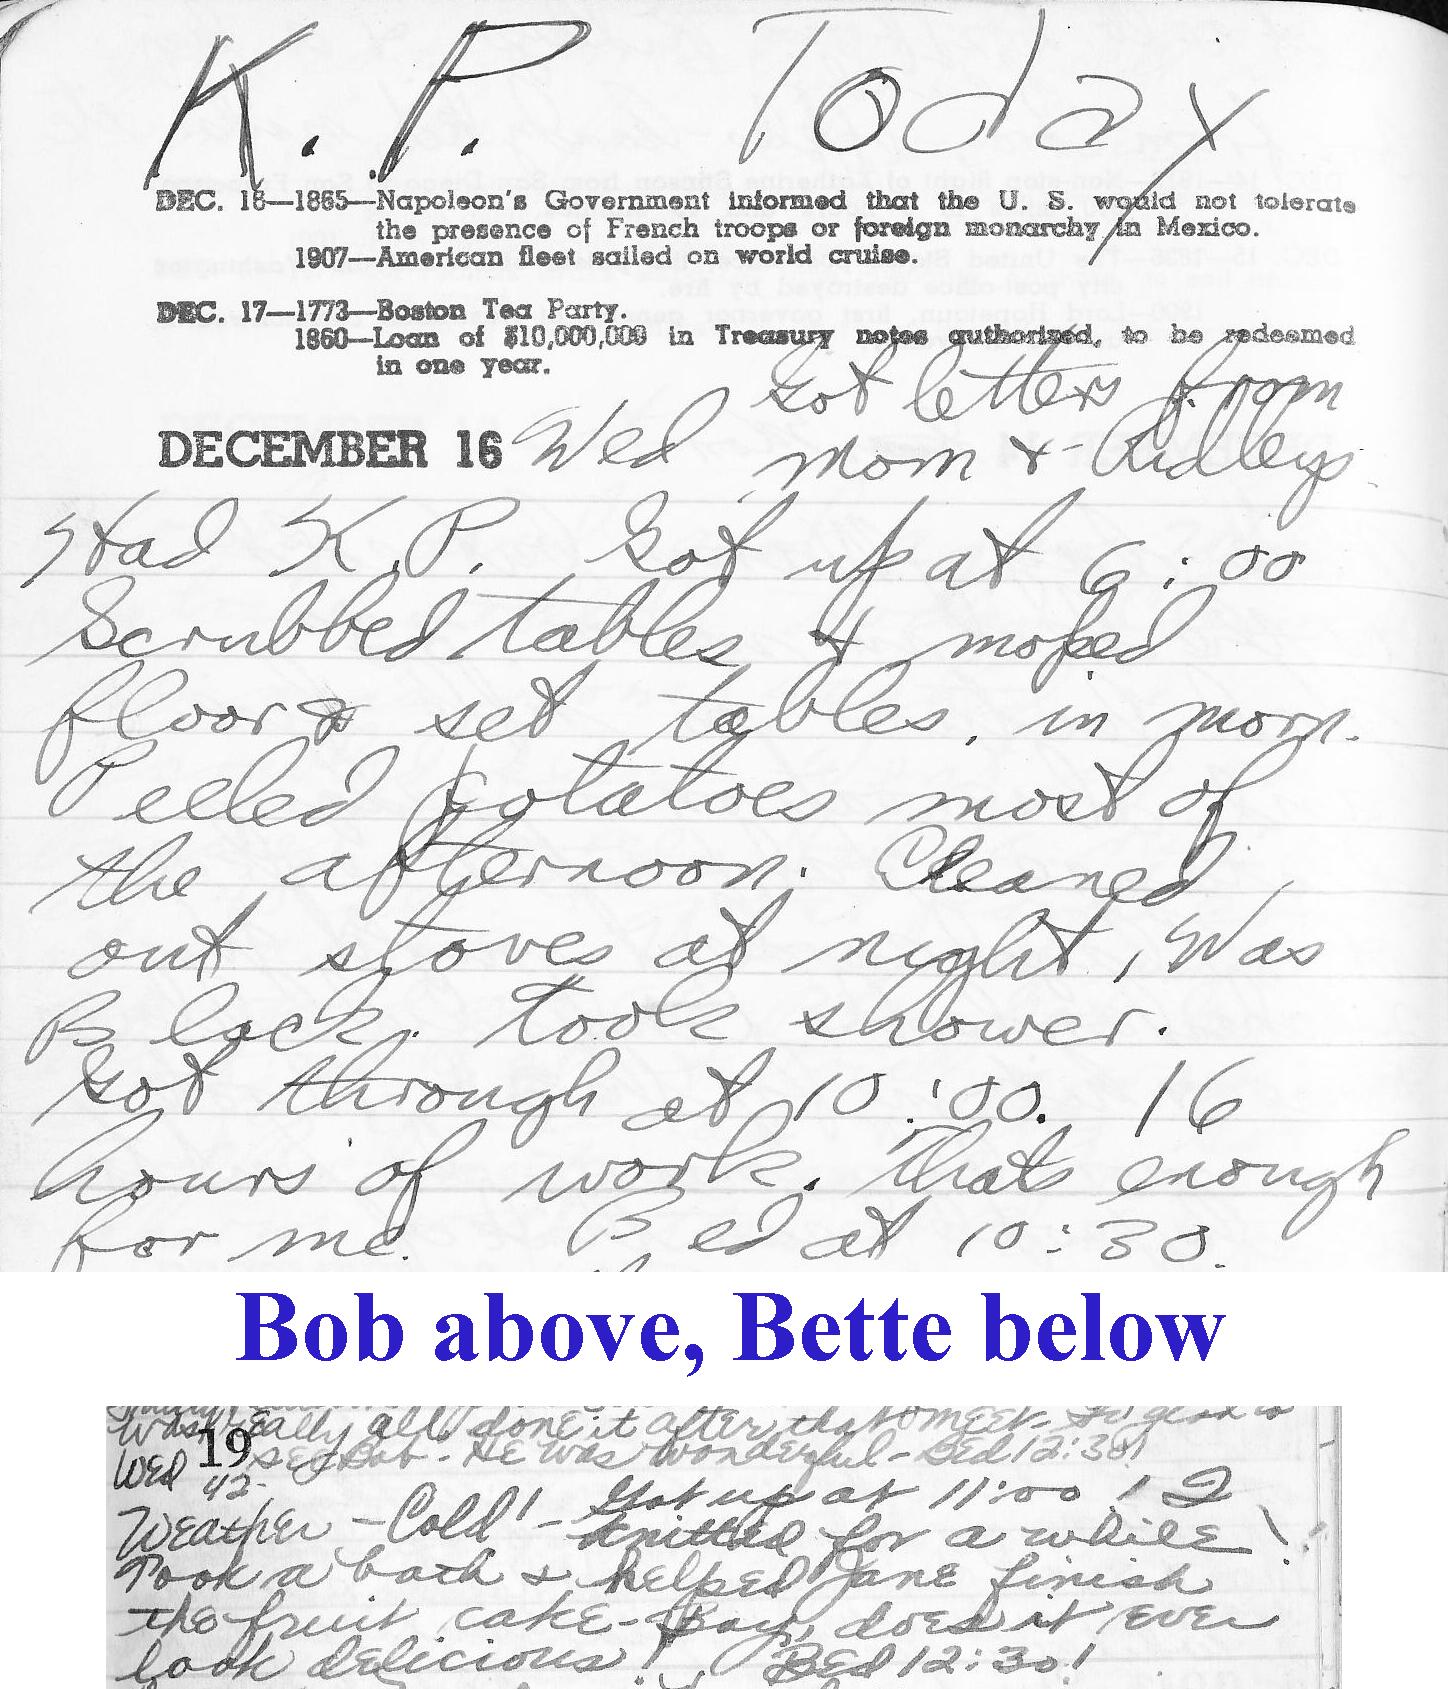 K. P. Today
DEC. 16—1865—Napoleon's Government informed that the U. S. would not tolerate
the presence of French troops or foreign monarchy in Mexico.
1907—American fleet sailed on world cruise.
DEC. 17—1773—Boston Tea Party.
1860—Loan of $10,000,000 in Treasury notes authorized, to be redeemed
in one year.
Got letters from
DECEMBER 16 Wed mom & Ridleys
Had K.P. Got up at 6:00
Scrubbed tables & moped
floor & set tables, in morn.
Peeled potatoes most of
the afternoon. Cleaned
out stoves at night, Was
Black. Took shower.
Got through at 10:00. 16
hours of work. Thats enough
for me. Bed at 10:30.
Bob above, Bette below
was really all done it after that meet-
see Bob - He was wonderful - Bed 12:30!
Wed 19
42-
Got up at 11:00!
Weather - Cold! - Knitted for a while!
Took a bath & helped Jane finish
the fruit cake - Boy, does it ever
look delicious! Bed 12:30!